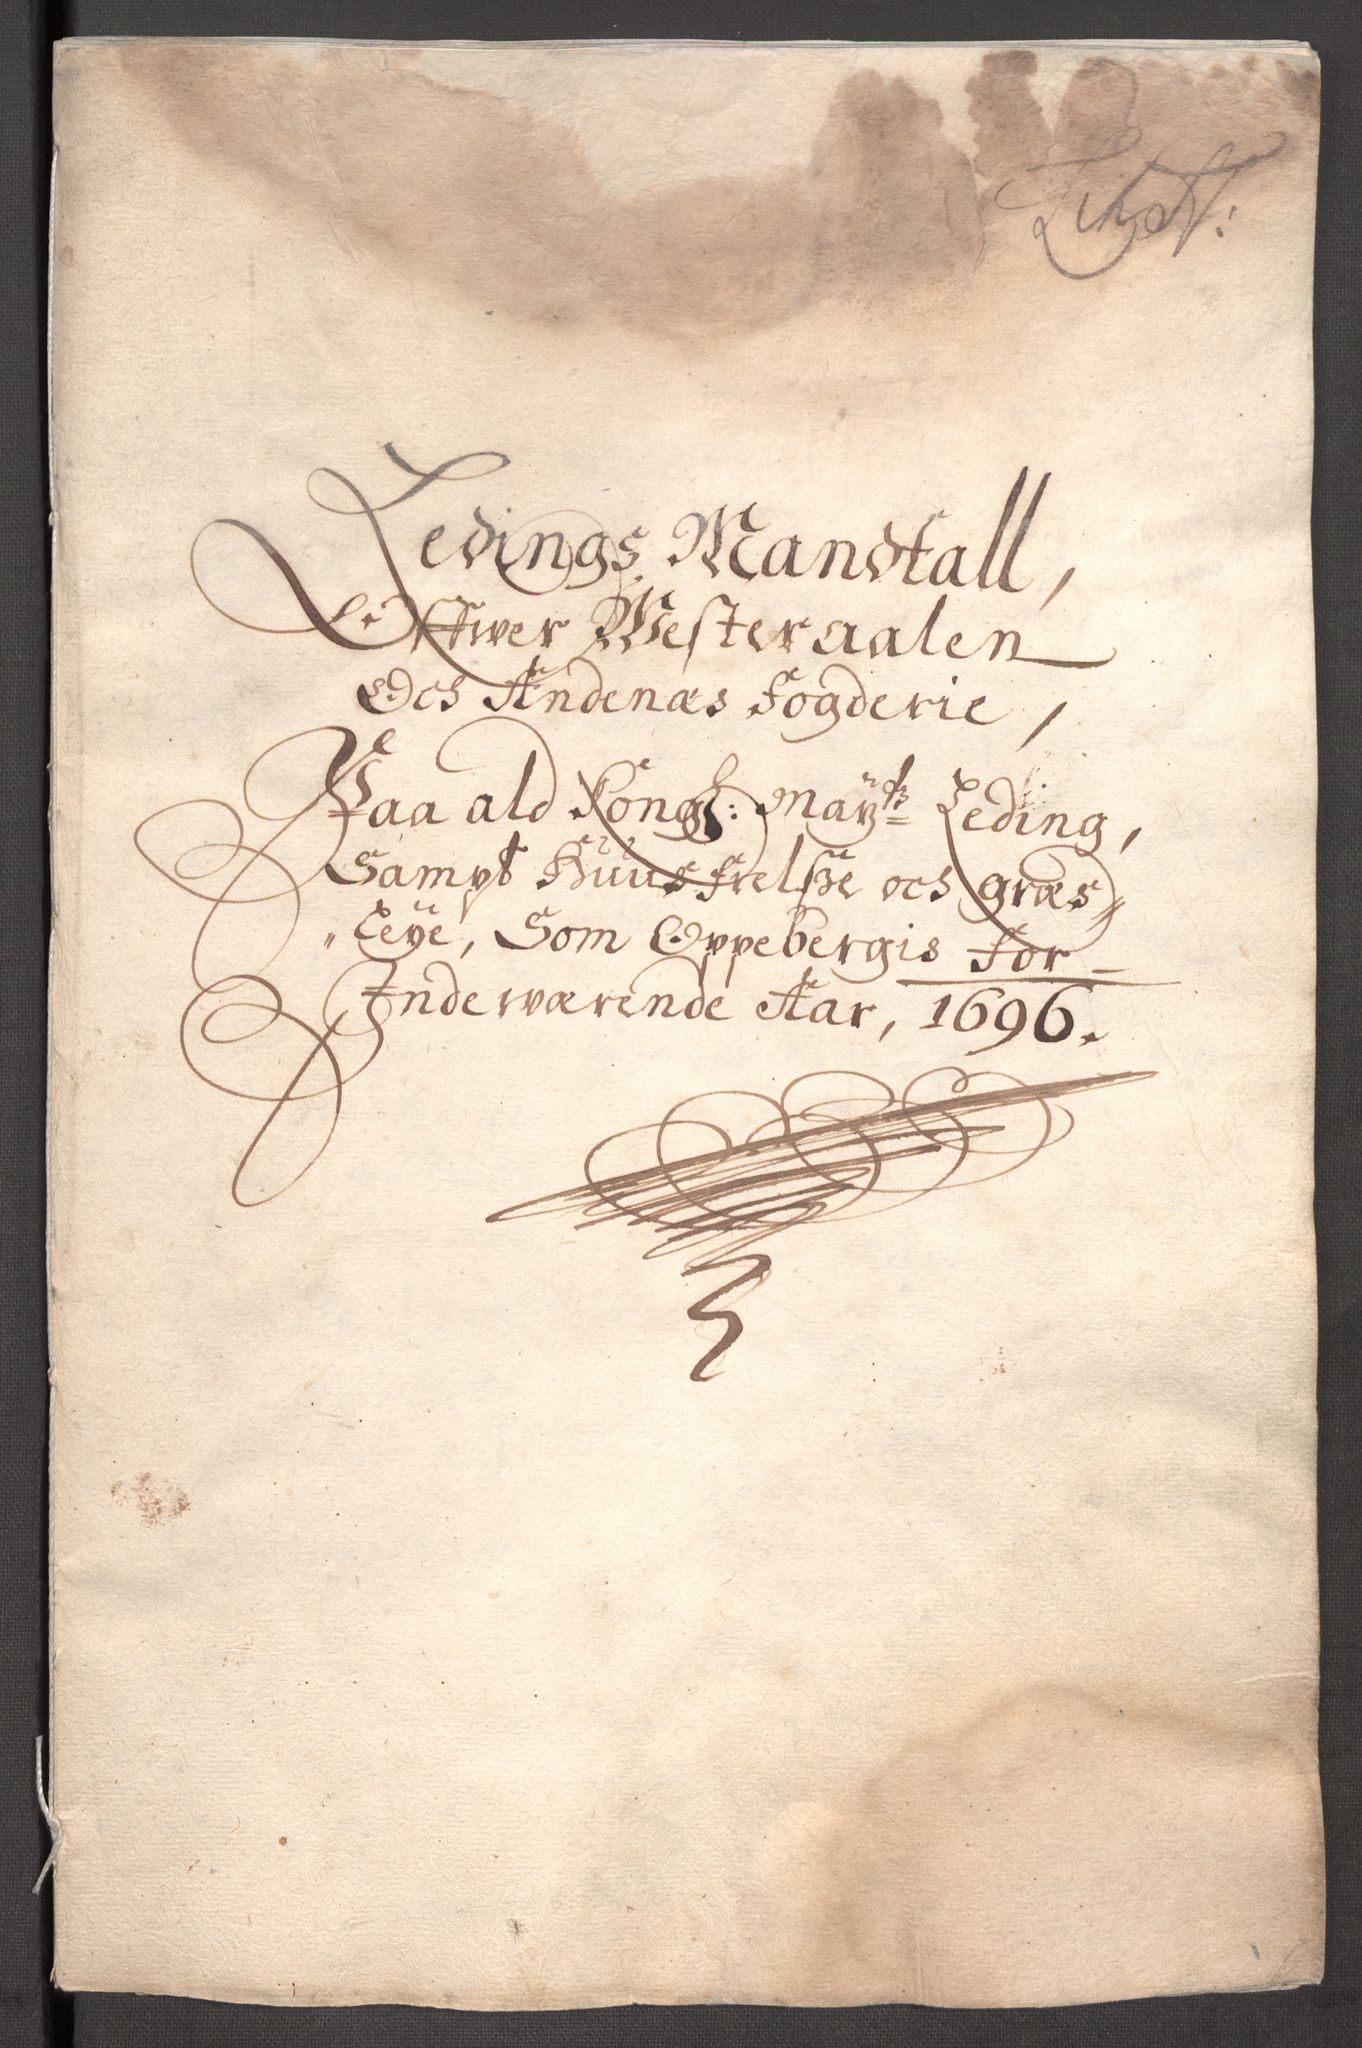 Ledings Mandtall,
Offwer Westeraalen
Och Andenæs fogderie,
Paa ald Kongl: Maÿtz Leding,
Sampt Huusfrelsße och græs
Leÿe, Som Oppebergis for
Inderwærende Aar, 1696.